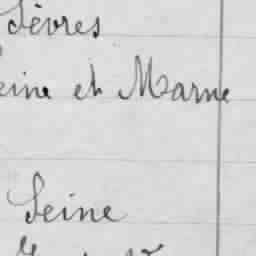 Sèvres
eine et Marne
Seine